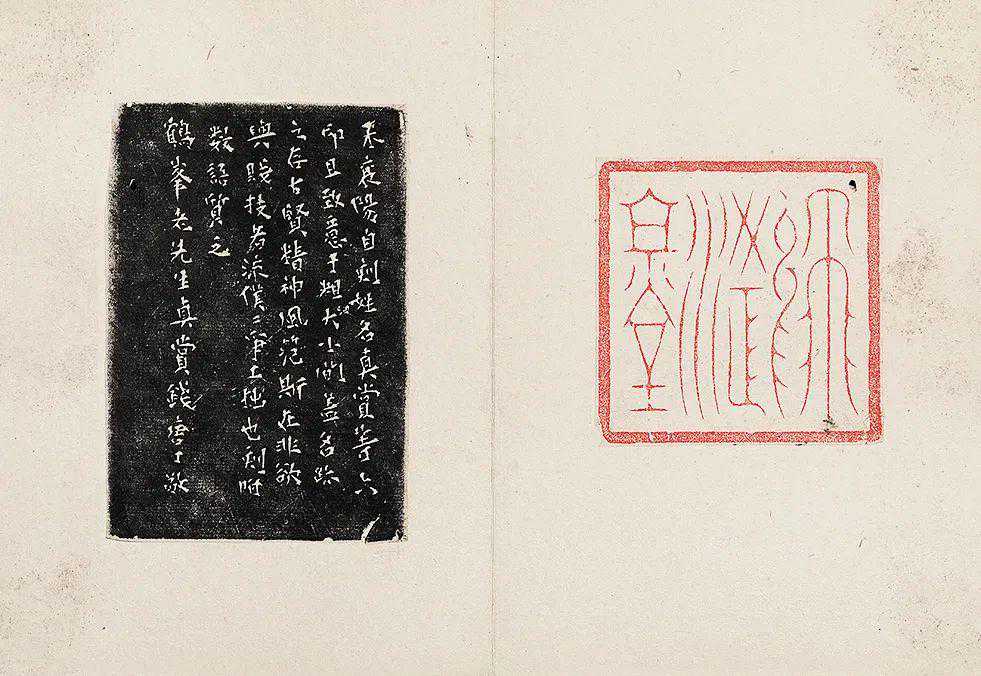 米襄陽自刻姓名真賞等六
印且致意于粗大小間蓋名跡
之存古賢精神風範斯在非欲
與賤技者流僕〻爭工拙也刻附
數語質之
鶴峯老先生真賞錢唐丁敬